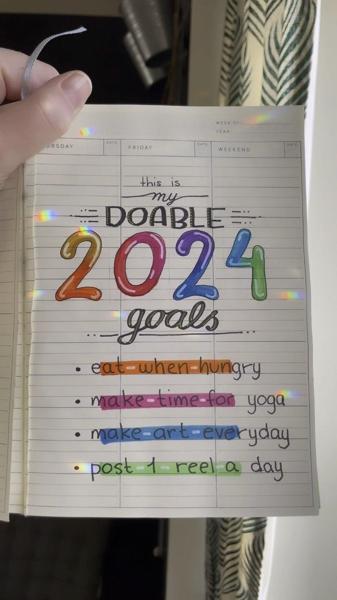 WEEK
YEAR
FRIDAY
WEEKEND
this is
my
DOABLE
2024
goals
• eat when hungry
• make time for yoga
• make art everyday
• post 1 reel a day